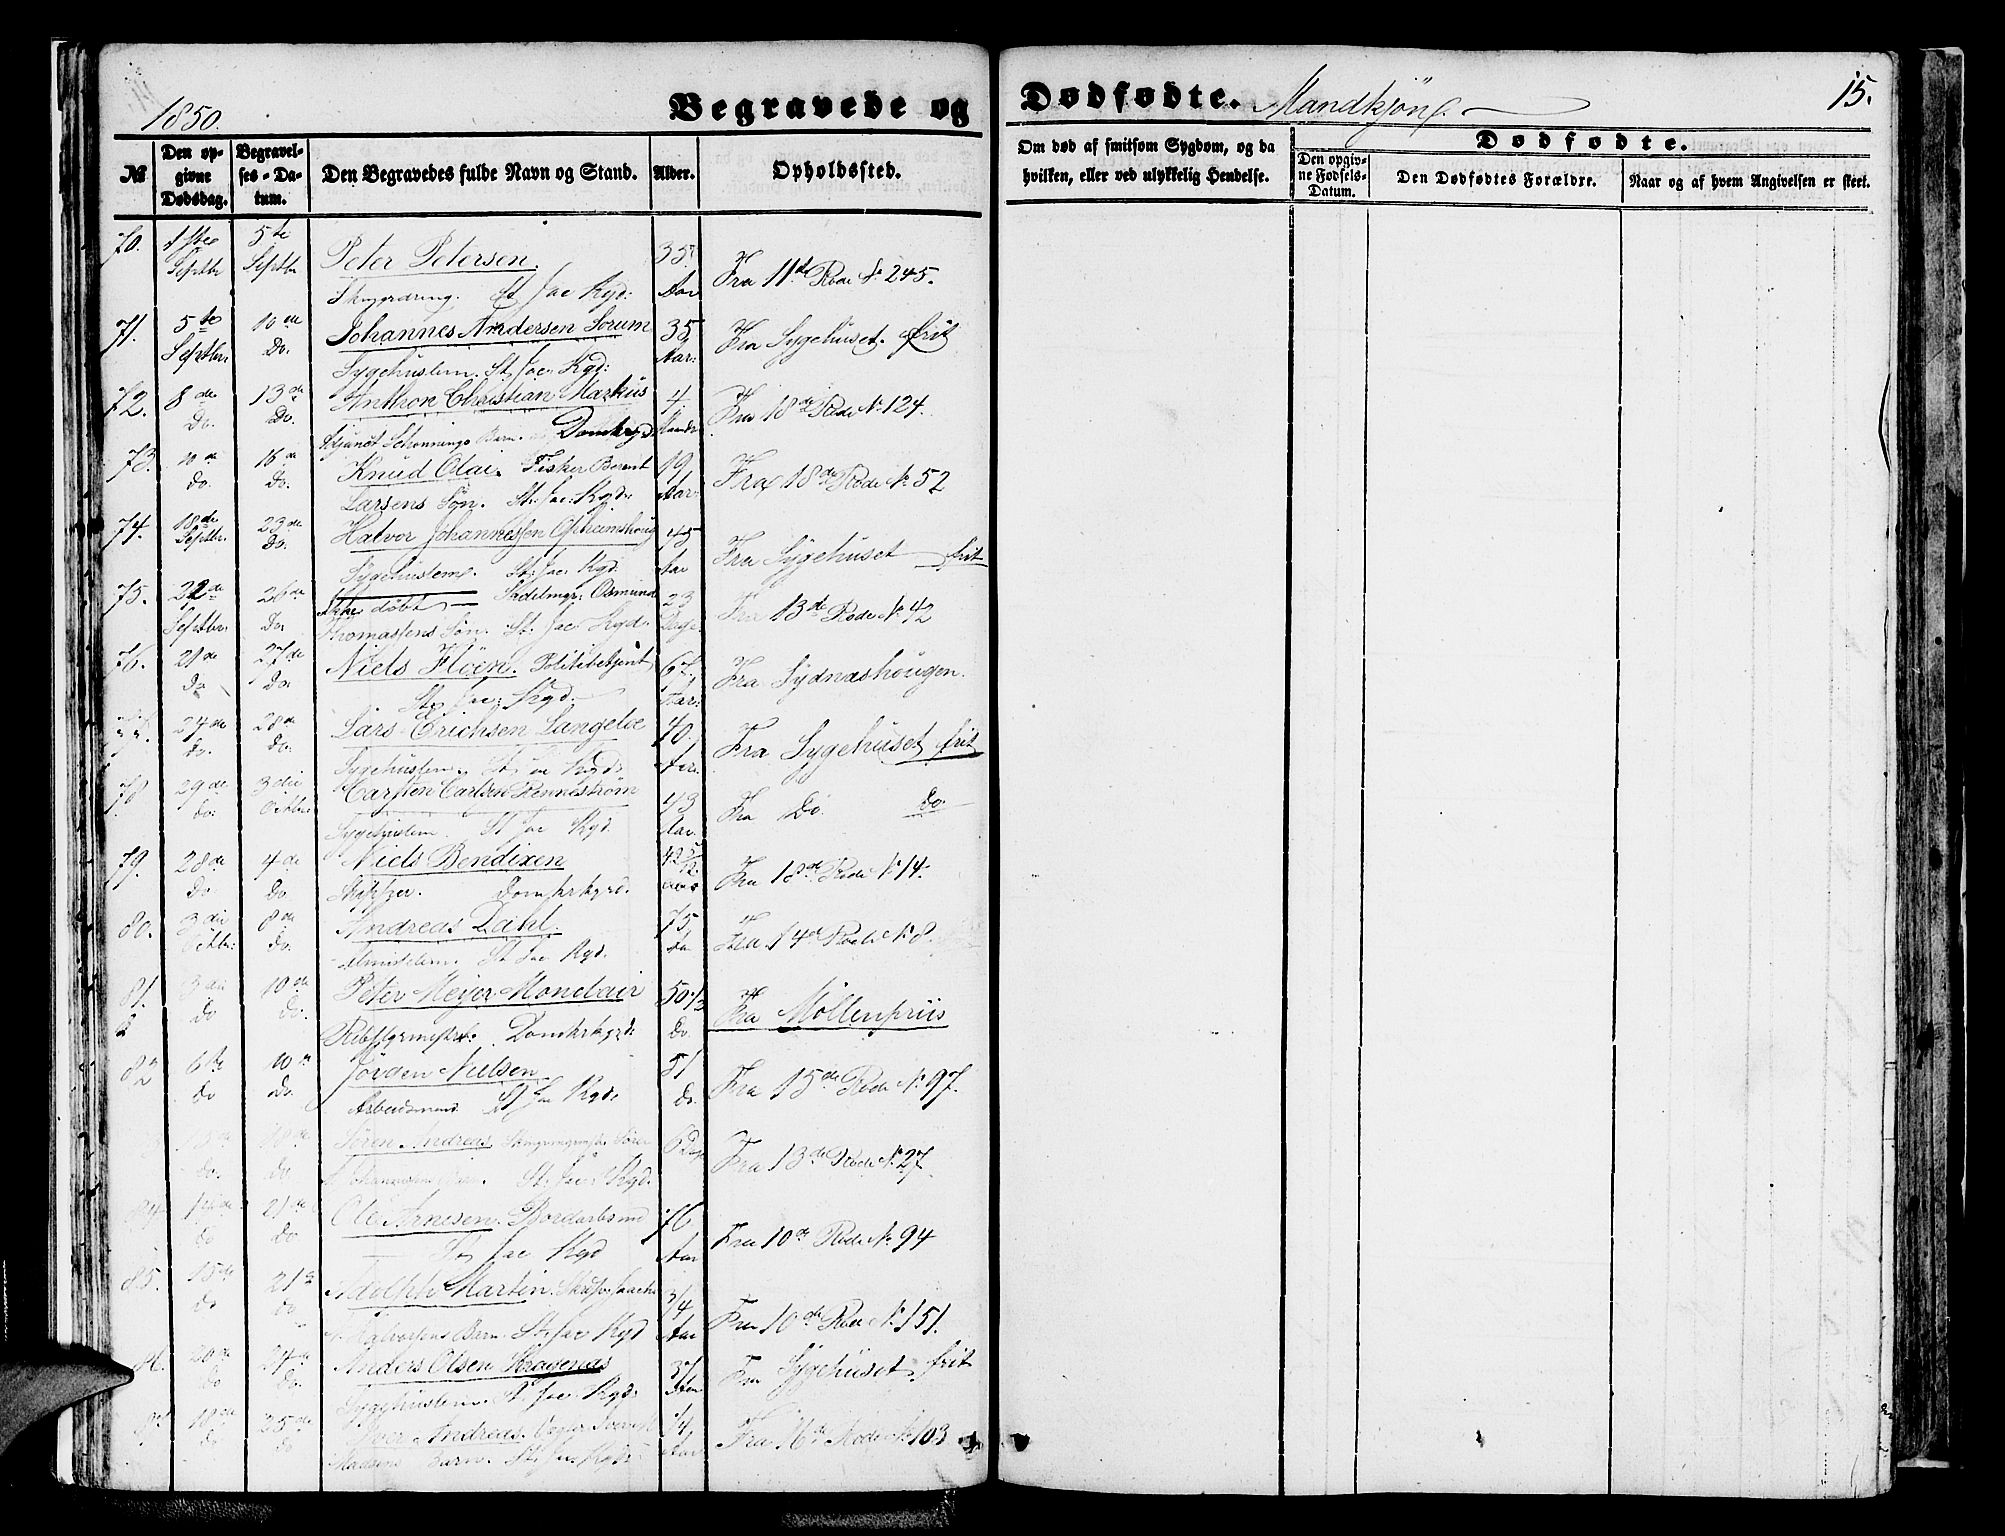 1850.
Begravede og Dødfødte. Mandkjøn.
15.
No
Den opgivne Dødsdag.
Begravelses-Datum.
Den Begravedes fulde Navn og Stand.
Alder.
Opholdssted.
Om død af smitsom Sygdom, og da hvilken, eller ved ulykkelig Hendelse.
Dødfødte.
Den opgivne Fødsels-Datum.
Den Dødfødtes Forældre.
Naar og af hvem Angivelsen er skeet.
70. Septbr 5te Septbr Peter Petersen. 35 Aar Fra 11te Rode No 245.
St Jac Kgd:
71. 5te Septbr. 10de Do. Johannes Andersen Sorum 35 Aar: Fra Sygehuset. frit
Sygehuslem. St. Jac Kgd:
72. 8de Do. 13de Do. Anthon Christian Markus 4 Fra 18de Rode No. 124.
Schønnings Barn. Domkgd
73. 10de Do. 16de Do. Knud Olai. Fisker Berent 19 Aar: Fra 18de Rode No. 52
Larsens Søn. St. Jac: Kgd:
74. 18de Septbr. 23de Do. Halvor Johannessen 45 Aar Fra Sygehuset frit
Sygehuslem. St. Jac Kgd.
75. 22de Septbr 26de Do Ikke døbt Sadelmgr: Osmund 23 Dage Fra 13de Rode No. 42
Thomassens Søn. St. Jac Kgd.
76. 21de Do 27de Do. Niels Fløen. Politibetjent 67 Aar: Fra Sydnæshougen.
St. Jac: Kgd.
77. 24de Do. 28de Do. Lars Erichsen Langeloe 40 Aar. Fra Sygehuset frit
Sygehuslem. St. Jac Kgd:
78 29de Do. 3die Octbr: Carsten Carlsen Rennestrøm 43 Aar. Fra Do. Do.
Sygehuslem. St Jac Kgd.
79. 28de Do 4de Do. Niels Bendixen 42 5/12 Fra 18de Rode No 14.
Skipper. Domkrkgrd.
80. 3die Octbr: 8de Do. Andreas Dahl. 75 Fra 14de Rode No 8.
Almislem. St Jac Kgd.
81. 3die Do 10de Do. Peter Meyer Monclair 50 1/2 Do. Fra Møllenpriis
Domkrkgrd:
82 6te Do 10de Do. Jørgen Nielsen Do. Fra 15de Rode No 97.
Arbeidsmand St Jac Kgd:
Do. 18de Do Søren Andreas 6 Dage Fra 13de Rode No. 27.
St. Jac: Kgd.
84 Do 21de Do. Ole Arnesen. Bordarbsmd 76 Aar Fra 10de Rode No. 94
St Jac Kgd
85. 15de Do 21de do. Adolph Martin. 3/4 Aar Fra 10de Rode No. 151.
Halvorsens Barn. St. Jac Kgd
86. 20de Do 24de Do. Anders Olsen Kragenæs 37 Fra Sygehuset frit
Sygehuslem. St. Jac: Kgd:
18de Do 25de Do Iver Andreas. 1/4 Aar Fra 16de Rode No 103
Madsens Barn. St. Jac Kgd: